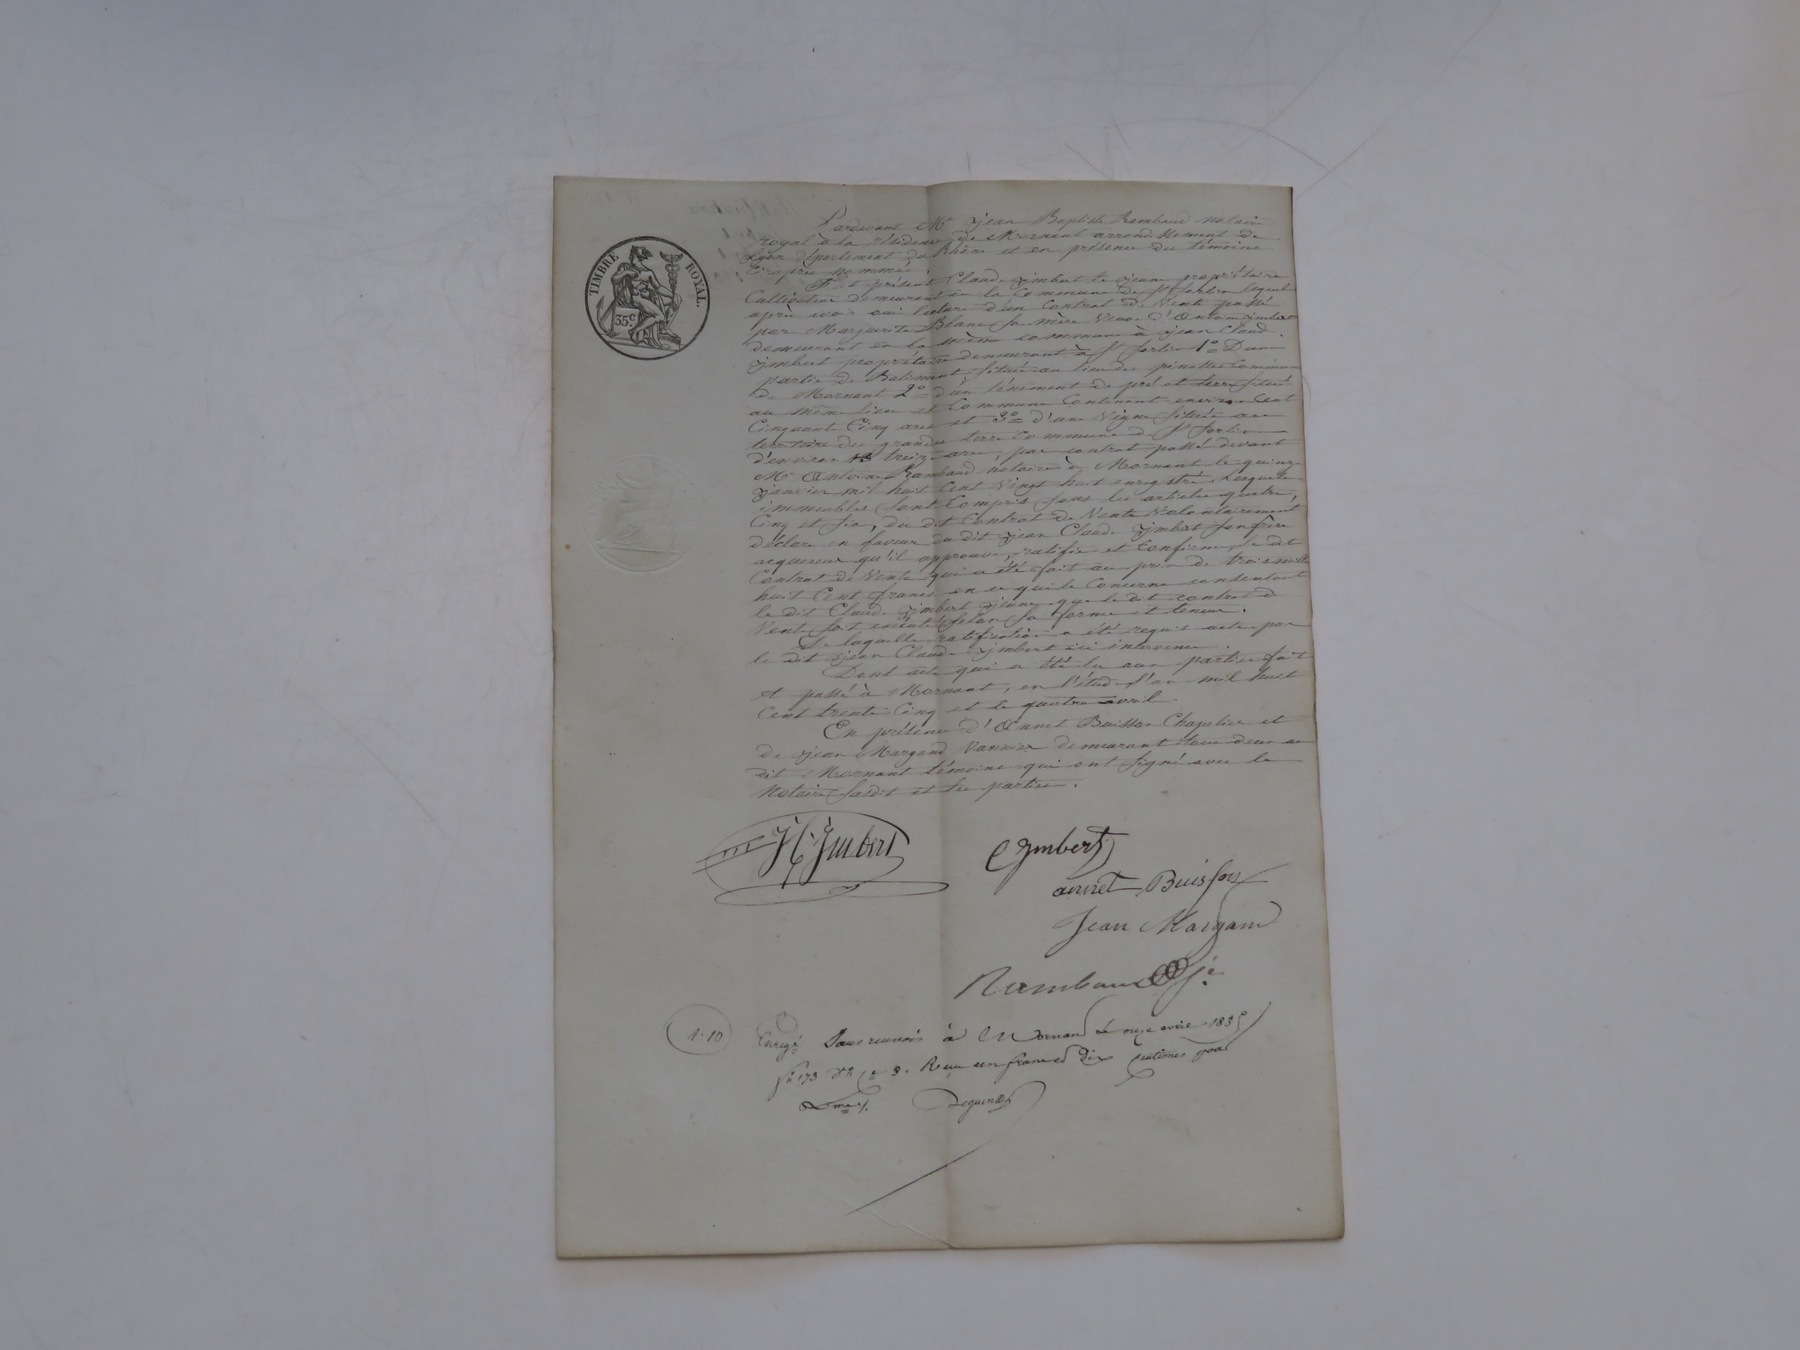 TIMBRE ROYAL.
35 c
Pardevant Me jean Baptiste Rambaud notaire
royal à la résidence de Mornant arrondissement de
Lyon département du Rhône et en présence des témoins
ci après nommés.
Fut présent Claude ymbert le jeune propriétaire
Cultivateur demeurant en la Commune de St Sorlin lequel
après avoir oui lecture d'un Contrat de Vente passé
par Marguerite Blanc sa mère Veuve d'Antoine ymbert
demeurant en la même commune à jean Claude
ymbert propriétaire demeurant à St Sorlin 1o D'une
partie de Batiment située au lieu des pinettes Commune
de Mornant 2o d'un ténement de pré et terre situé
au même lieu et Commune Contenant environ Cent
Cinquante Cinq ares et 3o d'une Vigne située au
territoire des grandes terres Commune de St Sorlin
d'environ treize ares, par contrat passé devant
Me Antoine Rambaud notaire à Mornant le quinze
janvier mil huit Cent Vingt huit enregistré. Lesquels
immeubles sont Compris sous les articles quatre,
Cinq et six, du dit Contrat de Vente Volontairement
déclare en faveur du dit jean Claude ymbert son frère
acquereur qu'il approuve, ratifie et Confirme, le dit
Contrat de Vente qui a été fait au prix de trois mille
huit Cent francs en ce qui le Concerne consentant
le dit Claude ymbert jeune que le dit contrat de
Vente soit exécuté selon sa forme et teneur.
De laquelle ratification a été requis acte par
le dit jean Claude ymbert ici intervenu.
Dont acte qui a été lu aux parties fait
et passé à Mornant, en l'étude l'an mil huit
Cent trente Cinq et le quatre avril.
En présence d'Annet Buisson Chapelier et
de jean Margand Vannier demeurant tous deux au
dit Mornant témoins qui ont signé avec le
Notaire susdit et les parties.
J C ymbert
C ymbert
annet Buisson
Jean Margand
Rambaud je.
1.10
Enregé Sans renvois à Mornand le onze avril 1835
fo 173 Vo Ce 3. Reçu un franc et dix centimes pour
Dme /.